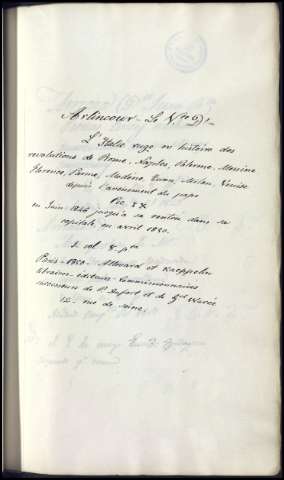 Arlincourt - Le Vte D'-
L'Italie rouge ou histoire des
revolutions de Rome, Naples, Palerme, Messine
Florence, Parme, Modene, Turin, Milan Venise
depuis l'avenement du pape
Pie IX
en Juin 1846 jusqu'a sa rentree dans sa
capitale en avril 1850.
8.
Paris - 1850 - Allouard et Kaeppelin
libraires - editeurs - Commissionnaires
successeurs de P. Dufart et de
12 - rue de Seine.